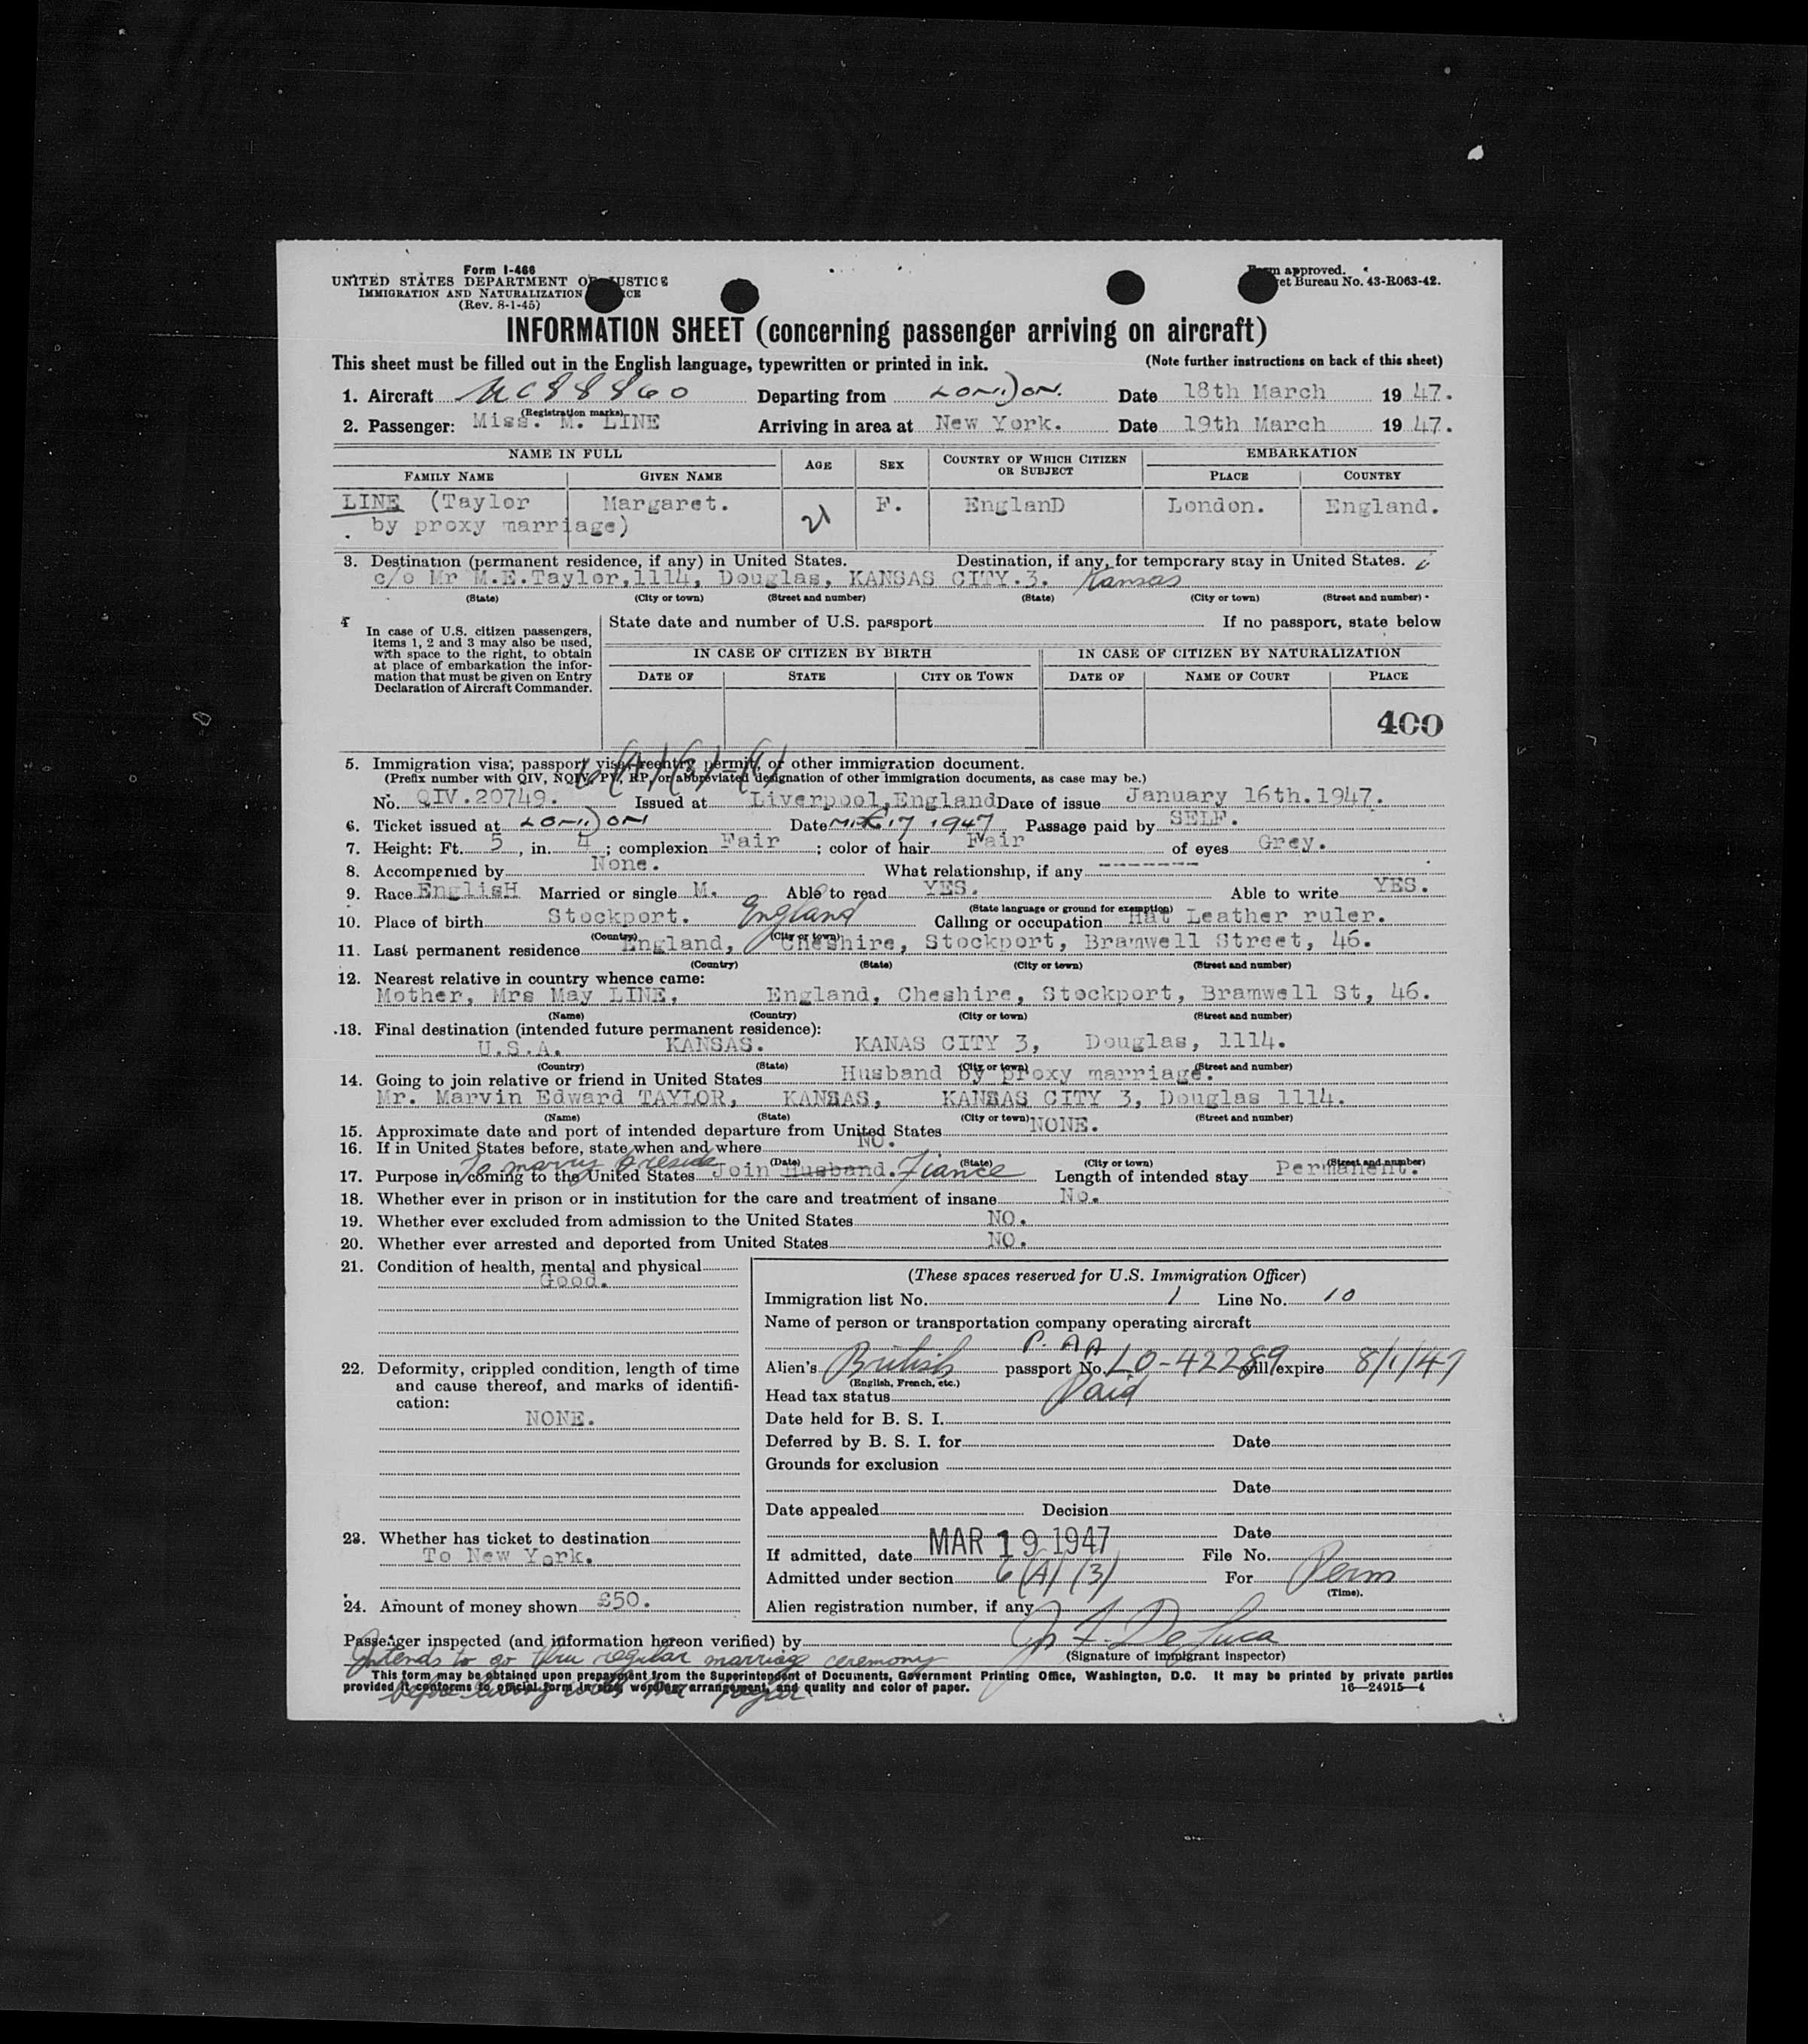 Form I-466
UNITED STATES DEPARTMENT OF JUSTICE
IMMIGRATION AND NATURALIZATION
(Rev. 8-1-45)
Form approved.
et Bureau No. 43-R063-42.
INFORMATION SHEET (concerning passenger arriving on aircraft)
This sheet must be filled out in the English language, typewritten or printed in ink. (Note further instructions on back of this sheet)
1. Aircraft NC88860 Departing from LONDON. Date 18th March 1947.
(Registration marks)
2. Passenger: Miss. M. LINE Arriving in area at New York. Date 19th March 1947.
NAME IN FULL AGE SEX COUNTRY OF WHICH CITIZEN OR SUBJECT EMBARKATION
FAMILY NAME GIVEN NAME PLACE COUNTRY
LINE (Taylor Margaret. 21 F. EnglanD London. England.
by proxy marriage)
3. Destination (permanent residence, if any) in United States. Destination, if any, for temporary stay in United States.
c/o Mr M.E.Taylor,1114, Douglas, KANSAS CITY.3. Kansas
(State) (City or town) (Street and number) (State) (City or town) (Street and number)
4 In case of U.S. citizen passengers, items 1, 2 and 3 may also be used, with space to the right, to obtain at place of embarkation the information that must be given on Entry Declaration of Aircraft Commander.
State date and number of U.S. passport If no passport, state below
IN CASE OF CITIZEN BY BIRTH IN CASE OF CITIZEN BY NATURALIZATION
DATE OF STATE CITY OR TOWN DATE OF NAME OF COURT PLACE
400
5. Immigration visa, passport visa, reentry permit, or other immigration document.
(Prefix number with QIV, NQIV, PV, RP, or abbreviated designation of other immigration documents, as case may be.)
No. QIV.20749. Issued at Liverpool,England Date of issue January 16th.1947.
6. Ticket issued at LONDON Date 17 1947 Passage paid by SELF.
7. Height: Ft. 5, in. 4; complexion Fair; color of hair Fair of eyes Grey.
8. Accompenied by None. What relationship, if any -------
9. Race EnglisH Married or single M. Able to read YES. Able to write YES.
(State language or ground for exemption)
10. Place of birth Stockport. England Calling or occupation Hat Leather ruler.
(Country) (City or town)
11. Last permanent residence England, Cheshire, Stockport, Bramwell Street, 46.
(Country) (State) (City or town) (Street and number)
12. Nearest relative in country whence came:
Mother, Mrs May LINE, England, Cheshire, Stockport, Bramwell St, 46.
(Name) (Country) (City or town) (Street and number)
13. Final destination (intended future permanent residence):
U.S.A. KANSAS. KANAS CITY 3, Douglas, 1114.
(Country) (State) (City or town) (Street and number)
14. Going to join relative or friend in United States Husband by proxy marriage.
Mr. Marvin Edward TAYLOR, KANSAS, KANSAS CITY 3, Douglas 1114.
(Name) (State) (City or town) (Street and number)
15. Approximate date and port of intended departure from United States NONE.
16. If in United States before, state when and where NO.
(Date) (State) (City or town) (Street and number)
To marry & reside
17. Purpose in coming to the United States Join Husband. Fiance Length of intended stay Permanent.
18. Whether ever in prison or in institution for the care and treatment of insane No.
19. Whether ever excluded from admission to the United States NO.
20. Whether ever arrested and deported from United States NO.
21. Condition of health, mental and physical
Good.
22. Deformity, crippled condition, length of time and cause thereof, and marks of identification:
NONE.
23. Whether has ticket to destination
To New York.
24. Amount of money shown £50.
(These spaces reserved for U.S. Immigration Officer)
Immigration list No. 1 Line No. 10
Name of person or transportation company operating aircraft
P. AA
Alien's British passport No. LO-42289 will expire 8/1/47
(English, French, etc.)
Head tax status Paid
Date held for B. S. I.
Deferred by B. S. I. for Date
Grounds for exclusion
Date
Date appealed Decision
Date
If admitted, date MAR 19 1947 File No.
Admitted under section 6(A)(3) For Perm
(Time).
Alien registration number, if any
Passenger inspected (and information hereon verified) by De Luca
(Signature of immigrant inspector)
Intends to go thru regular marriage ceremony
before living with Mr Taylor
This form may be obtained upon prepayment from the Superintendent of Documents, Government Printing Office, Washington, D.C. It may be printed by private parties
provided it conforms to official form in size, wording, arrangement, and quality and color of paper. 16—24915-4